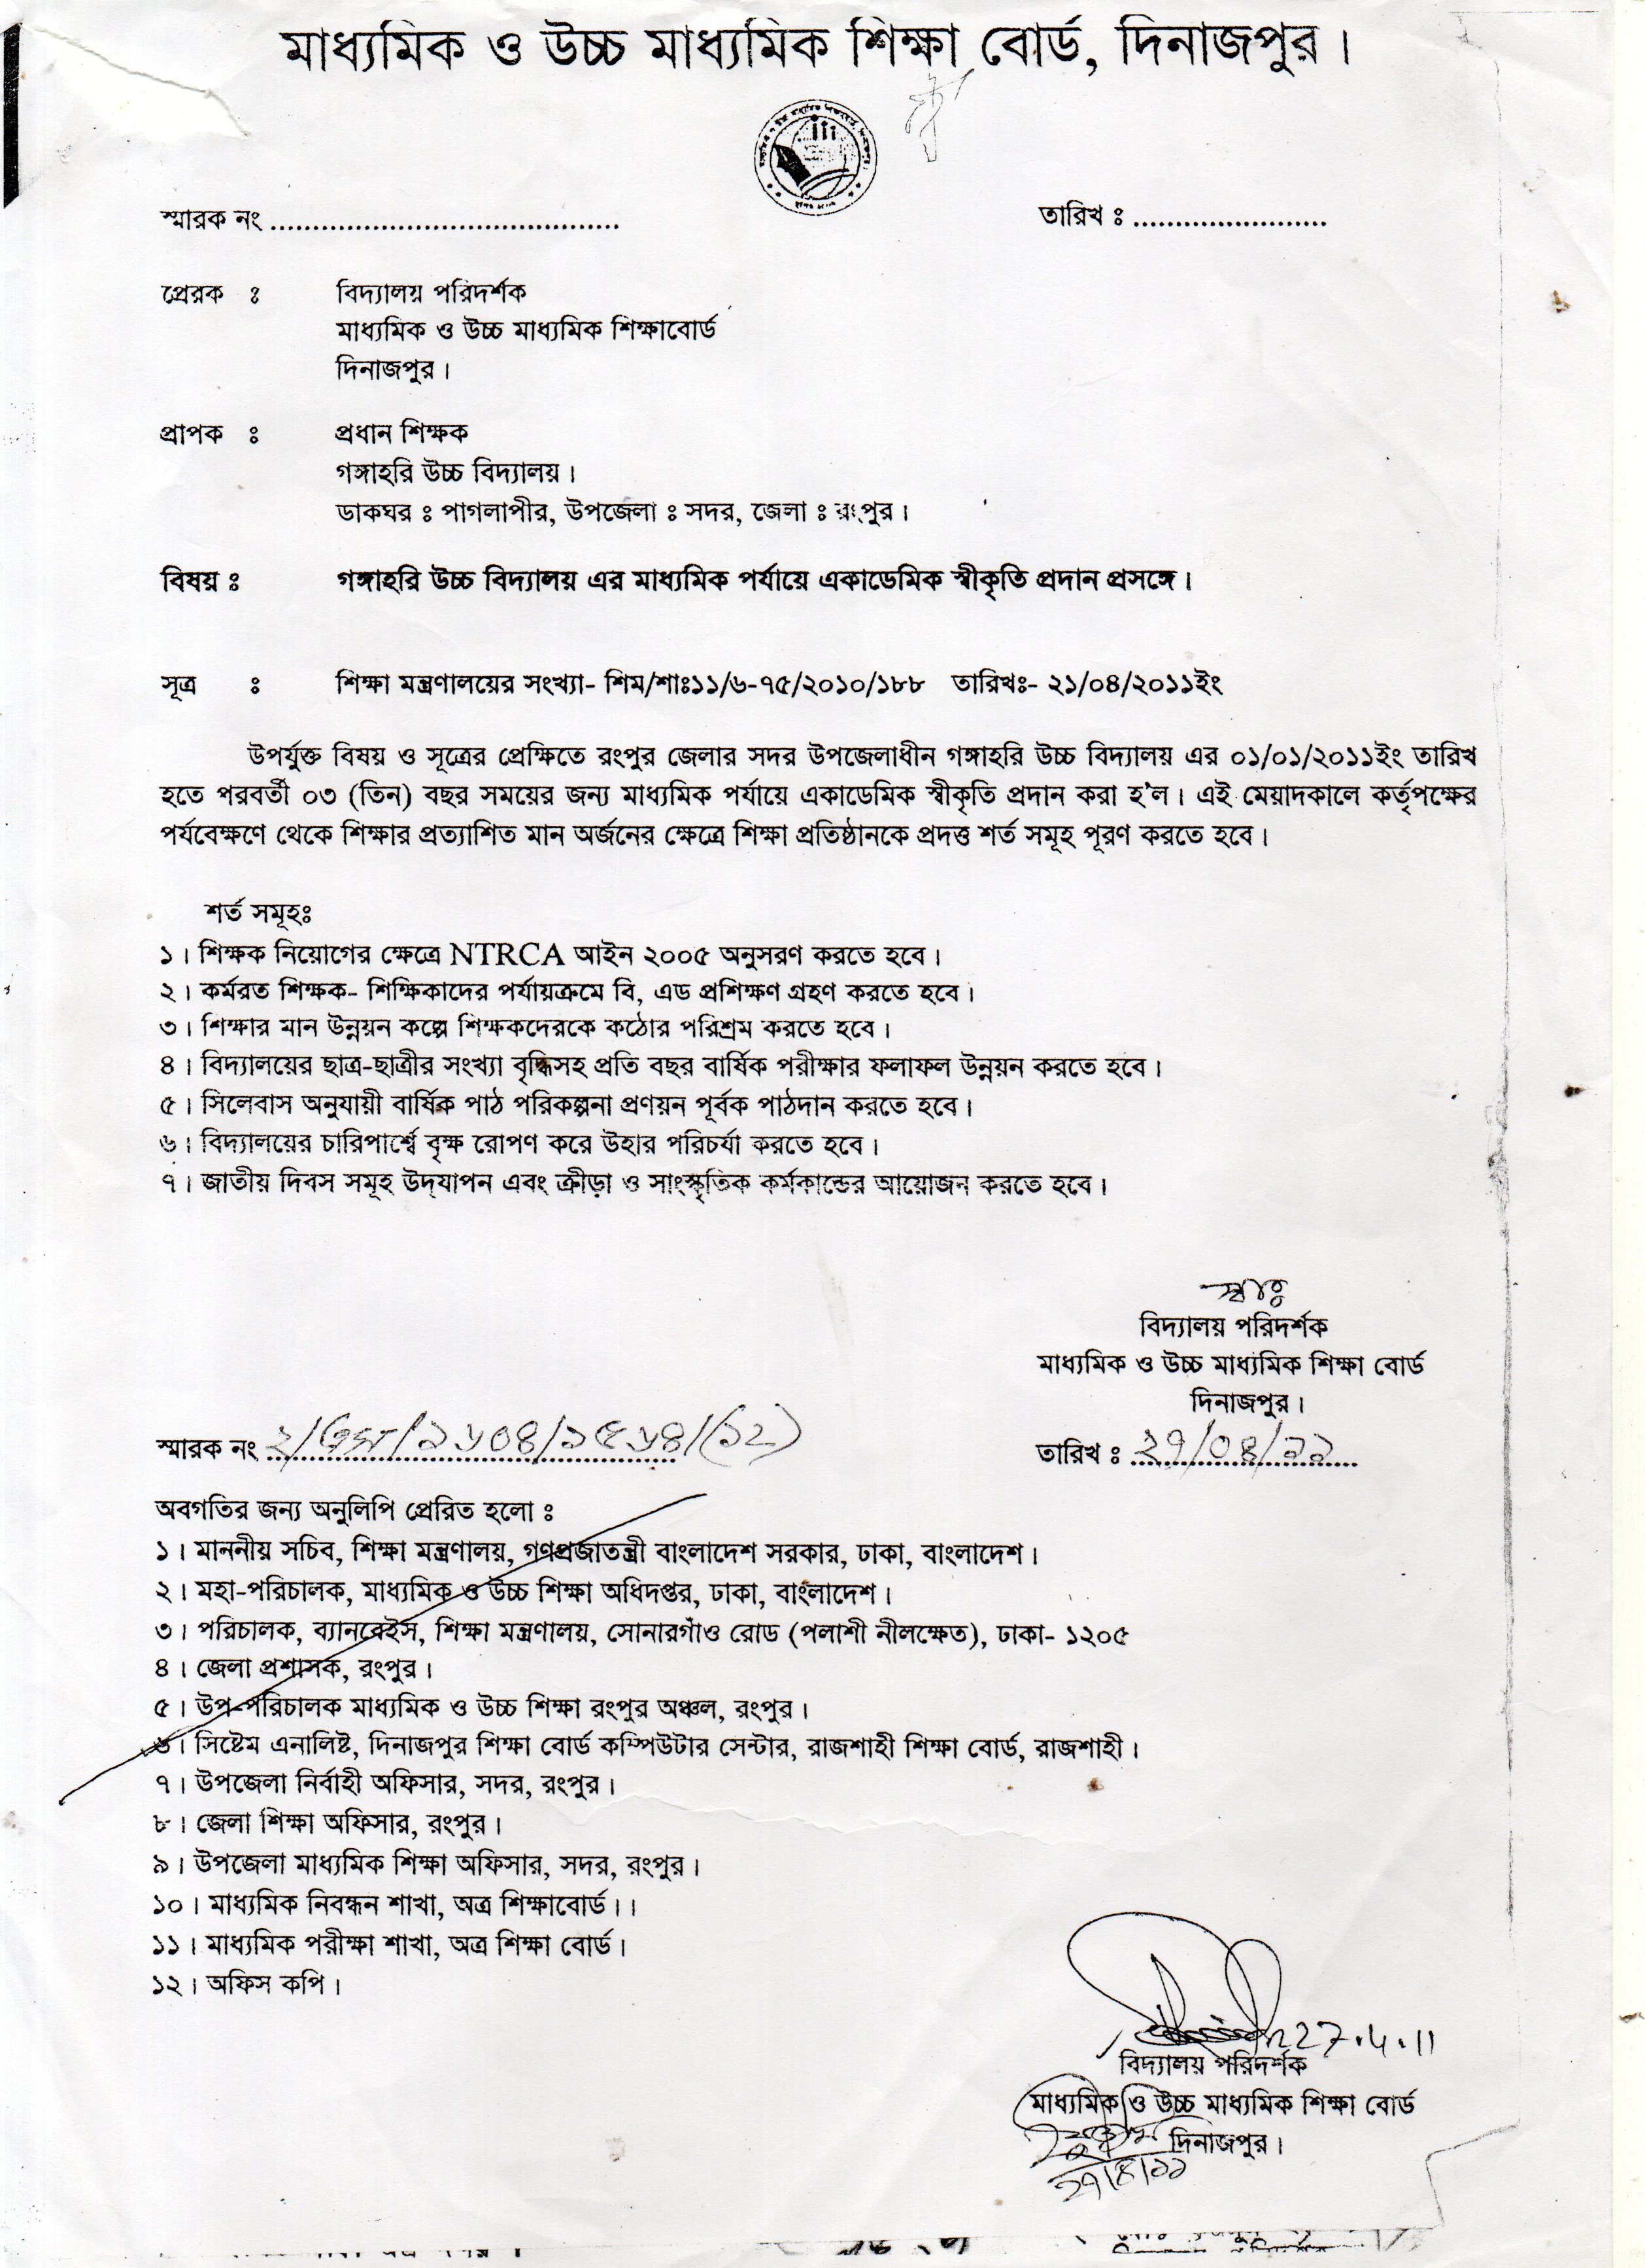 মাধ্যমিক ও উচ্চ মাধ্যমিক শিক্ষা বোর্ড, দিনাজপুর।
স্মারক নং ........................................ তারিখ ঃ .......................
প্রেরক ঃ বিদ্যালয় পরিদর্শক
মাধ্যমিক ও উচ্চ মাধ্যমিক শিক্ষাবোর্ড
দিনাজপুর।
প্রাপক ঃ প্রধান শিক্ষক
গঙ্গাহরি উচ্চ বিদ্যালয়।
ডাকঘর ঃ পাগলাপীর, উপজেলা ঃ সদর, জেলা ঃ রংপুর।
বিষয় ঃ গঙ্গাহরি উচ্চ বিদ্যালয় এর মাধ্যমিক পর্যায়ে একাডেমিক স্বীকৃতি প্রদান প্রসঙ্গে।
সূত্র ঃ শিক্ষা মন্ত্রণালয়ের সংখ্যা- শিম/শাঃ১১/৬-৭৫/২০১০/১৮৮ তারিখঃ- ২১/০৪/২০১১ইং
উপর্যুক্ত বিষয় ও সূত্রের প্রেক্ষিতে রংপুর জেলার সদর উপজেলাধীন গঙ্গাহরি উচ্চ বিদ্যালয় এর ০১/০১/২০১১ইং তারিখ
হতে পরবর্তী ০৩ (তিন) বছর সময়ের জন্য মাধ্যমিক পর্যায়ে একাডেমিক স্বীকৃতি প্রদান করা হ'ল। এই মেয়াদকালে কর্তৃপক্ষের
পর্যবেক্ষণে থেকে শিক্ষার প্রত্যাশিত মান অর্জনের ক্ষেত্রে শিক্ষা প্রতিষ্ঠানকে প্রদত্ত শর্ত সমূহ পূরণ করতে হবে।
শর্ত সমূহঃ
১। শিক্ষক নিয়োগের ক্ষেত্রে NTRCA আইন ২০০৫ অনুসরণ করতে হবে।
২। কর্মরত শিক্ষক- শিক্ষিকাদের পর্যায়ক্রমে বি, এড প্রশিক্ষণ গ্রহণ করতে হবে।
৩। শিক্ষার মান উন্নয়ন কল্পে শিক্ষকদেরকে কঠোর পরিশ্রম করতে হবে।
৪। বিদ্যালয়ের ছাত্র-ছাত্রীর সংখ্যা বৃদ্ধিসহ প্রতি বছর বার্ষিক পরীক্ষার ফলাফল উন্নয়ন করতে হবে।
৫। সিলেবাস অনুযায়ী বার্ষিক পাঠ পরিকল্পনা প্রণয়ন পূর্বক পাঠদান করতে হবে।
৬। বিদ্যালয়ের চারিপার্শ্বে বৃক্ষ রোপণ করে উহার পরিচর্যা করতে হবে।
৭। জাতীয় দিবস সমূহ উদ্‌যাপন এবং ক্রীড়া ও সাংস্কৃতিক কর্মকান্ডের আয়োজন করতে হবে।
স্বাঃ
বিদ্যালয় পরিদর্শক
মাধ্যমিক ও উচ্চ মাধ্যমিক শিক্ষা বোর্ড
দিনাজপুর।
স্মারক নং তারিখ ঃ ২৭/০৪/১১
অবগতির জন্য অনুলিপি প্রেরিত হলো ঃ
১। মাননীয় সচিব, শিক্ষা মন্ত্রণালয়, গণপ্রজাতন্ত্রী বাংলাদেশ সরকার, ঢাকা, বাংলাদেশ।
২। মহা-পরিচালক, মাধ্যমিক ও উচ্চ শিক্ষা অধিদপ্তর, ঢাকা, বাংলাদেশ।
৩। পরিচালক, ব্যানবেইস, শিক্ষা মন্ত্রণালয়, সোনারগাঁও রোড (পলাশী নীলক্ষেত), ঢাকা- ১২০৫
৪। জেলা প্রশাসক, রংপুর।
৫। উপ-পরিচালক মাধ্যমিক ও উচ্চ শিক্ষা রংপুর অঞ্চল, রংপুর।
৬। সিষ্টেম এনালিষ্ট, দিনাজপুর শিক্ষা বোর্ড কম্পিউটার সেন্টার, রাজশাহী শিক্ষা বোর্ড, রাজশাহী।
৭। উপজেলা নির্বাহী অফিসার, সদর, রংপুর।
৮। জেলা শিক্ষা অফিসার, রংপুর।
৯। উপজেলা মাধ্যমিক শিক্ষা অফিসার, সদর, রংপুর।
১০। মাধ্যমিক নিবন্ধন শাখা, অত্র শিক্ষাবোর্ড।।
১১। মাধ্যমিক পরীক্ষা শাখা, অত্র শিক্ষা বোর্ড।
১২। অফিস কপি।
27.4.11
বিদ্যালয় পরিদর্শক
মাধ্যমিক ও উচ্চ মাধ্যমিক শিক্ষা বোর্ড
দিনাজপুর।
২৭/৪/১১